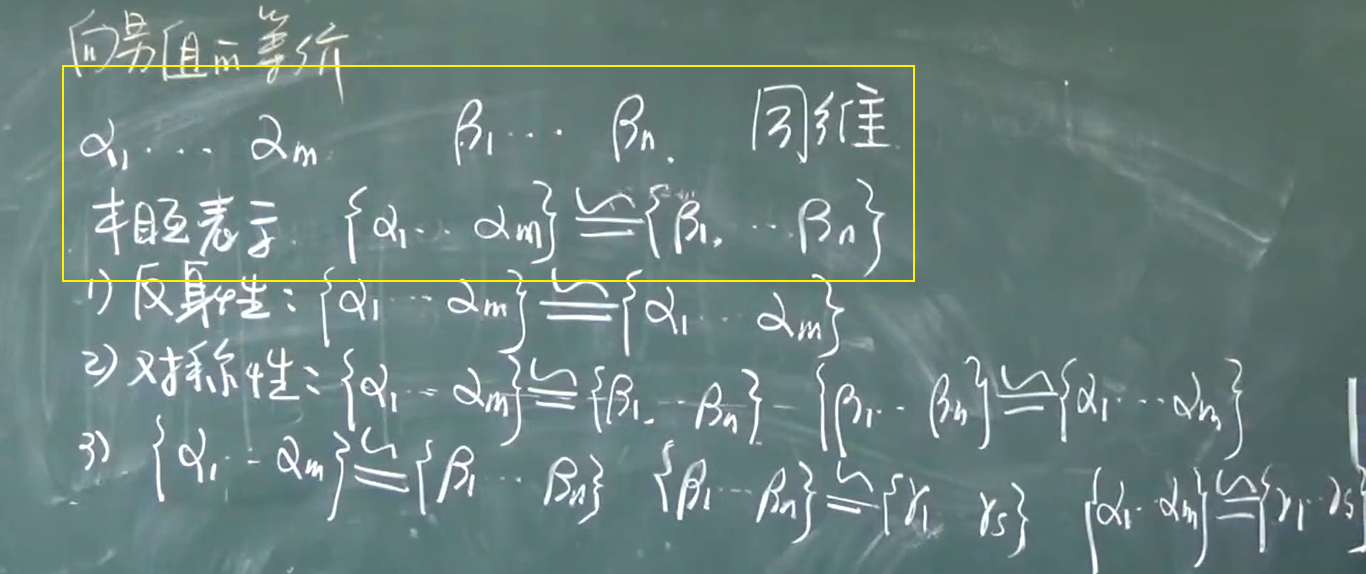 向量组的等价
α₁ ··· αₘ β₁ ··· βₙ. 同维
相互表示 {α₁ ·· αₘ} ≌ {β₁, ·· βₙ}
1) 反身性: {α₁ ··· αₘ} ≌ {α₁ αₘ}
2) 对称性: {α₁ ·· αₘ} ≌ {β₁. ·· βₙ} {β₁ ·· βₙ} ≌ {α₁ ··· αₘ}
3) {α₁ ·· αₘ} ≌ {β₁ ··· βₙ} {β₁ ··· βₙ} ≌ {γ₁ γ₅} {α₁ ·· αₘ} ≌ {γ₁ ·· γ₅}